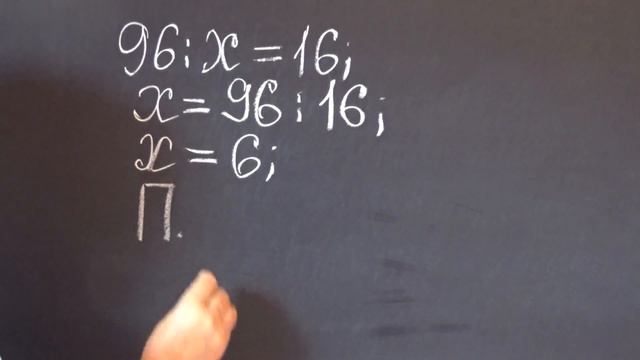 96:x=16;
x=96:16;
x=6;
П.